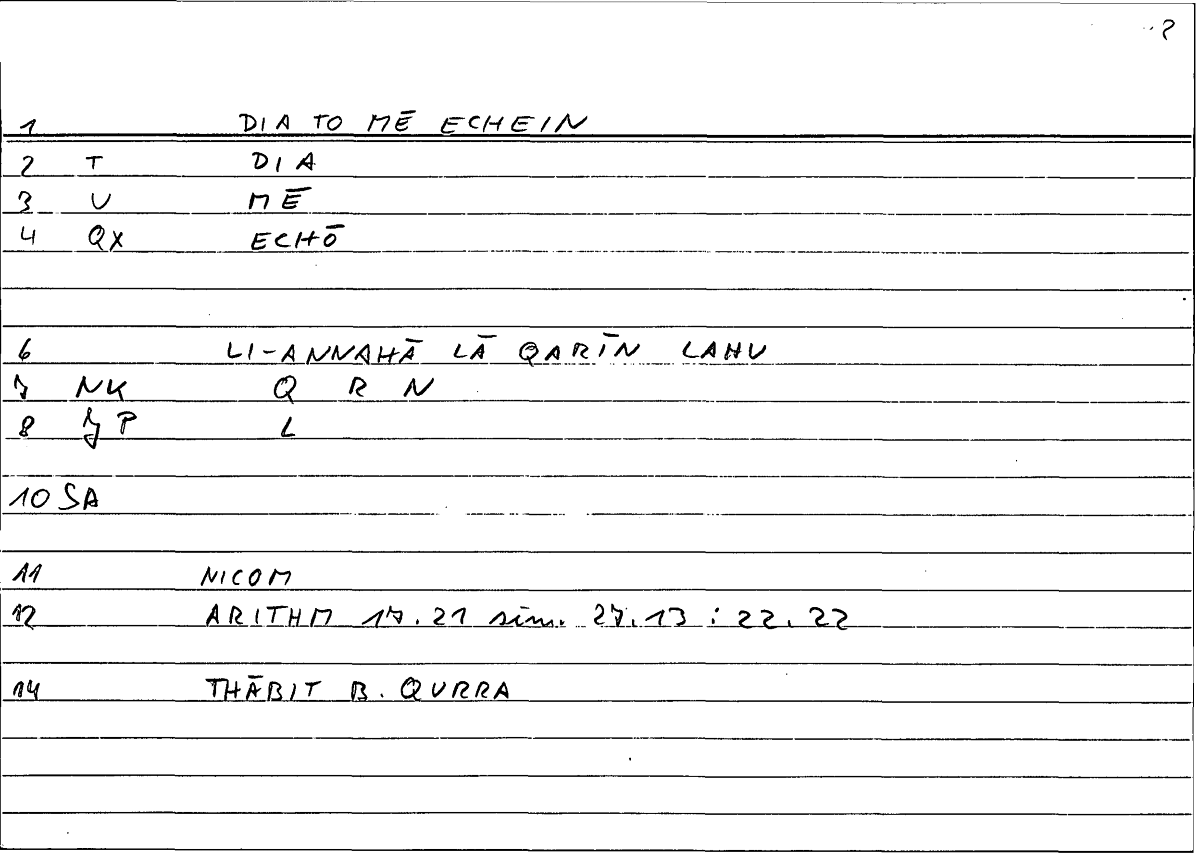 2
1 DIA TO MĒ ECHEIN
2 T DIA
3 U MĒ
4 QX ECHŌ
6 LI-ANNAHĀ LĀ QARĪN LAHU
7 NK Q R N
8 P L
10 SA
11 NICOM
12 ARITHM 17.21 sim. 27.13 : 22.22
14 THĀBIT B. QURRA